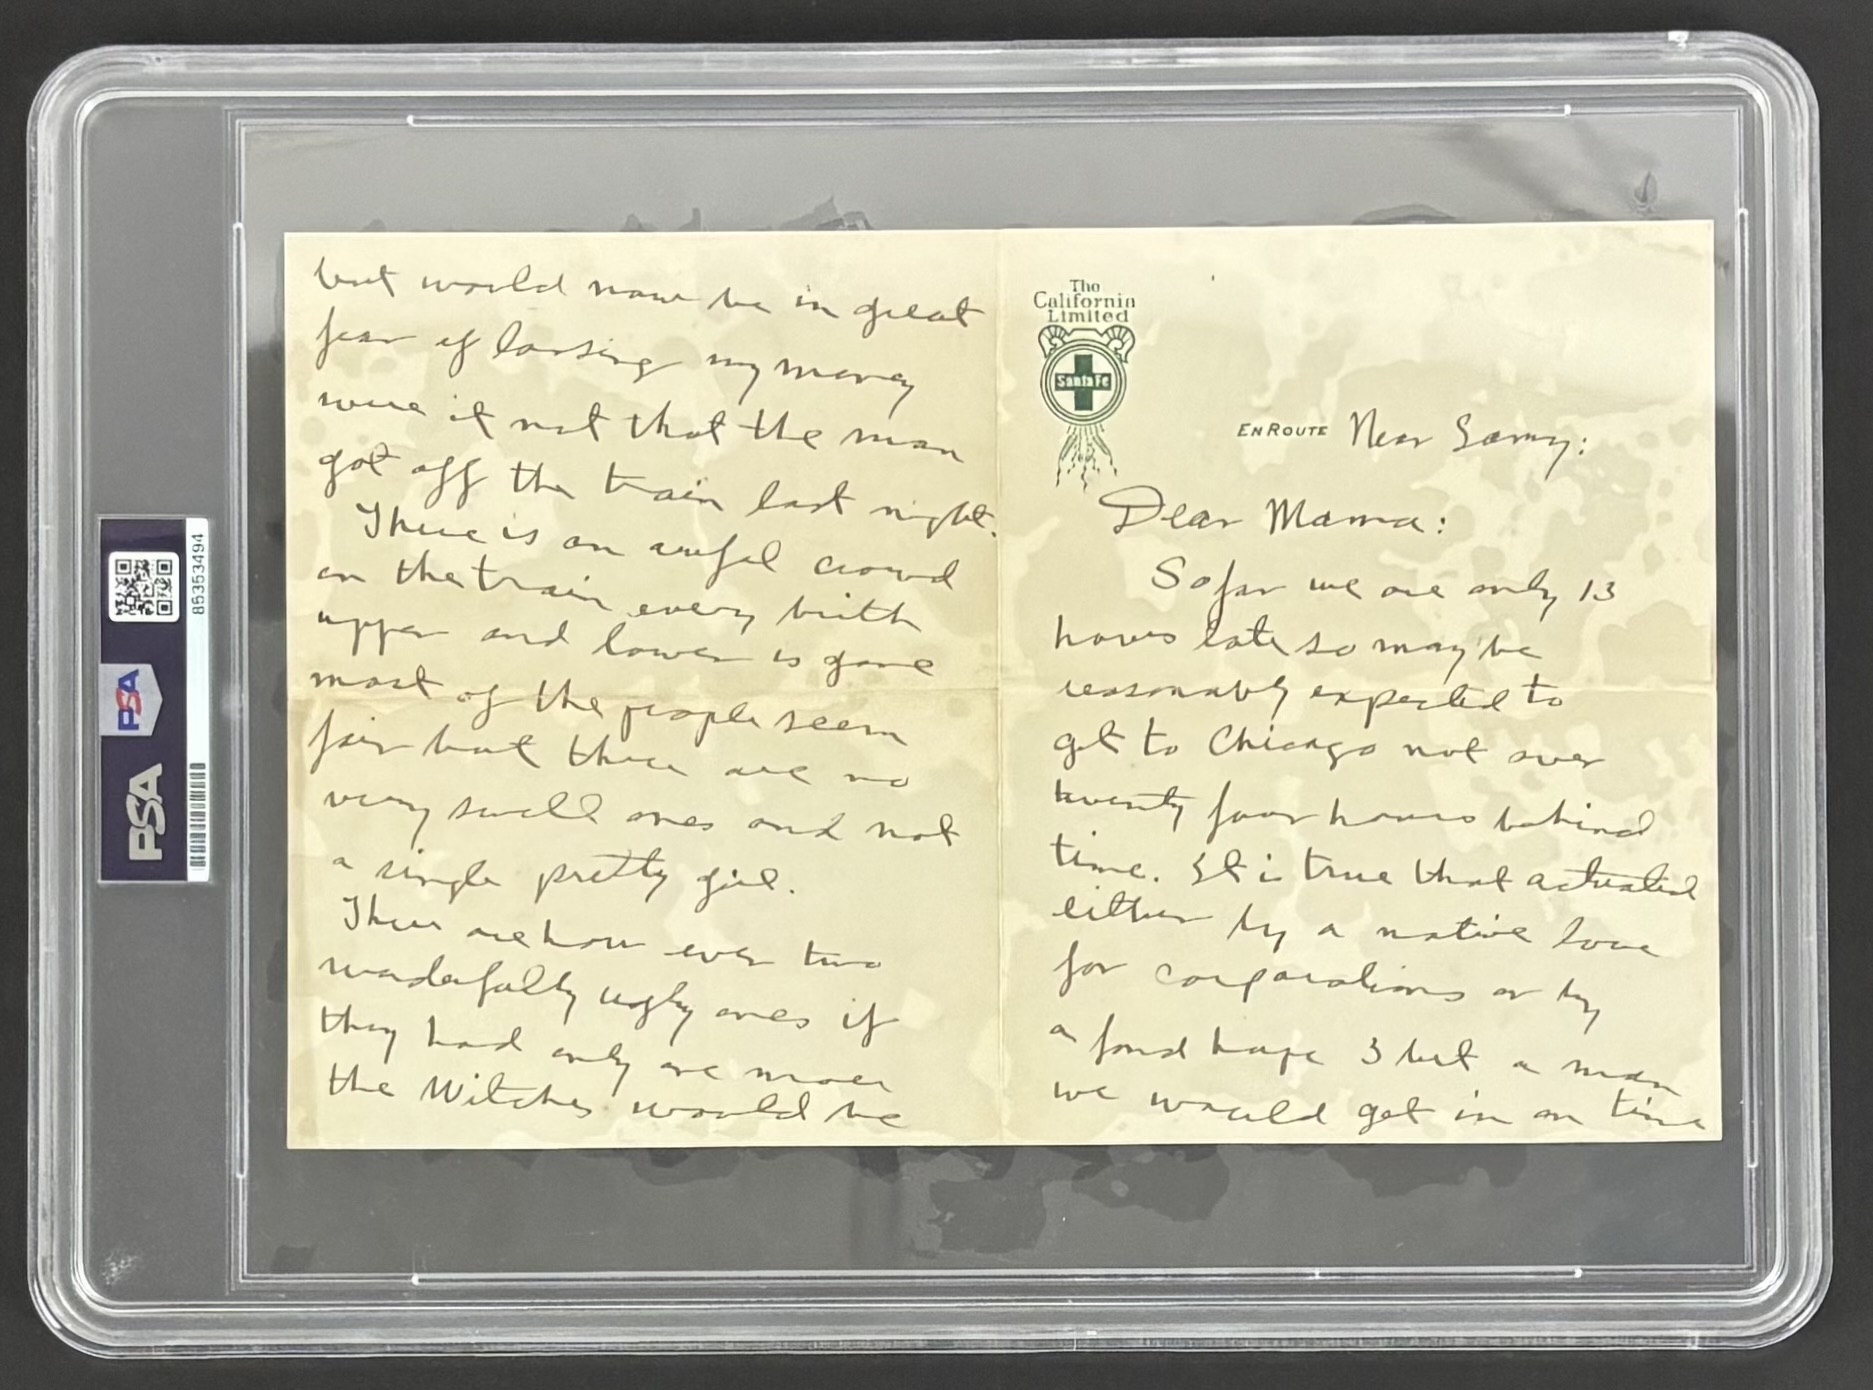 The
California
Limited
Santa Fe
EN ROUTE Near
Dear Mama:
So far we are only 13
hours late so may be
reasonably expected to
get to Chicago not over
twenty four hours behind
time. It is true that actuated
either by a native love
for corporations or by
a fond hope I bet a man
we would get in on time
but would now be in great
fear of loosing my money
were it not that the man
got off the train last night.
There is an awful crowd
on the train every birth
upper and lower is gone
most of the people seem
fair but there are no
very swell ones and not
a single pretty girl.
There are how ever two
wonderfully ugly ones if
they had only one more
the Witches would be
PSA
PSA
85353494